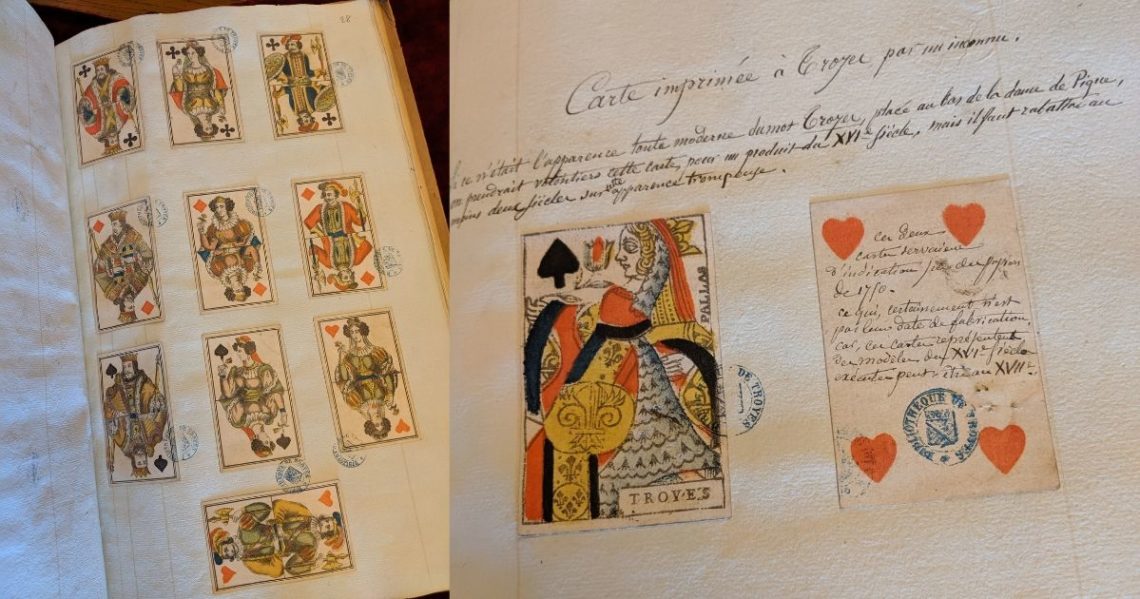 28
Carte imprimée à Troyes par un inconnu.
Si ce n'était l'apparence toute moderne du mot Troyes, placé au bas de la dame de Pique,
on prendrait volontiers cette carte, pour un produit du XVIe Siècle, mais il faut rabattre au
moins deux siècles sur cette apparence trompeuse.
PALLAS
TROYES
DE TROYES
ces deux
cartes servaient
d'indication
de 1750.
ce qui, certainement n'est
pas leur date de fabrication,
car, ces cartes représentent
des modèles du XVIe Siècle
exécutés peut être au XVIIe.
BIBLIOTHÈQUE DE TROYES